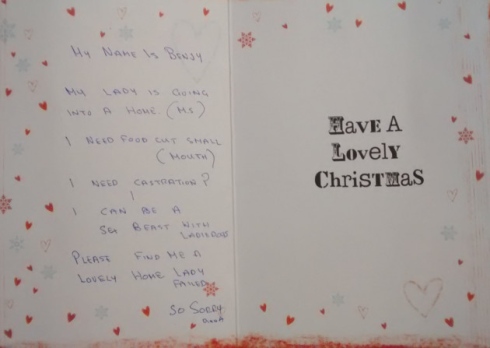 MY NAME IS BENJY
MY LADY IS GOING
INTO A HOME. (MS)
I NEED FOOD CUT SMALL
(MOUTH)
I NEED CASTRATION?
I CAN BE A
SEX BEAST WITH
PLEASE FIND ME A
LOVELY HOME LADY
FAILED
SO SORRY
HAVE A
LOVELY
CHRISTMAS